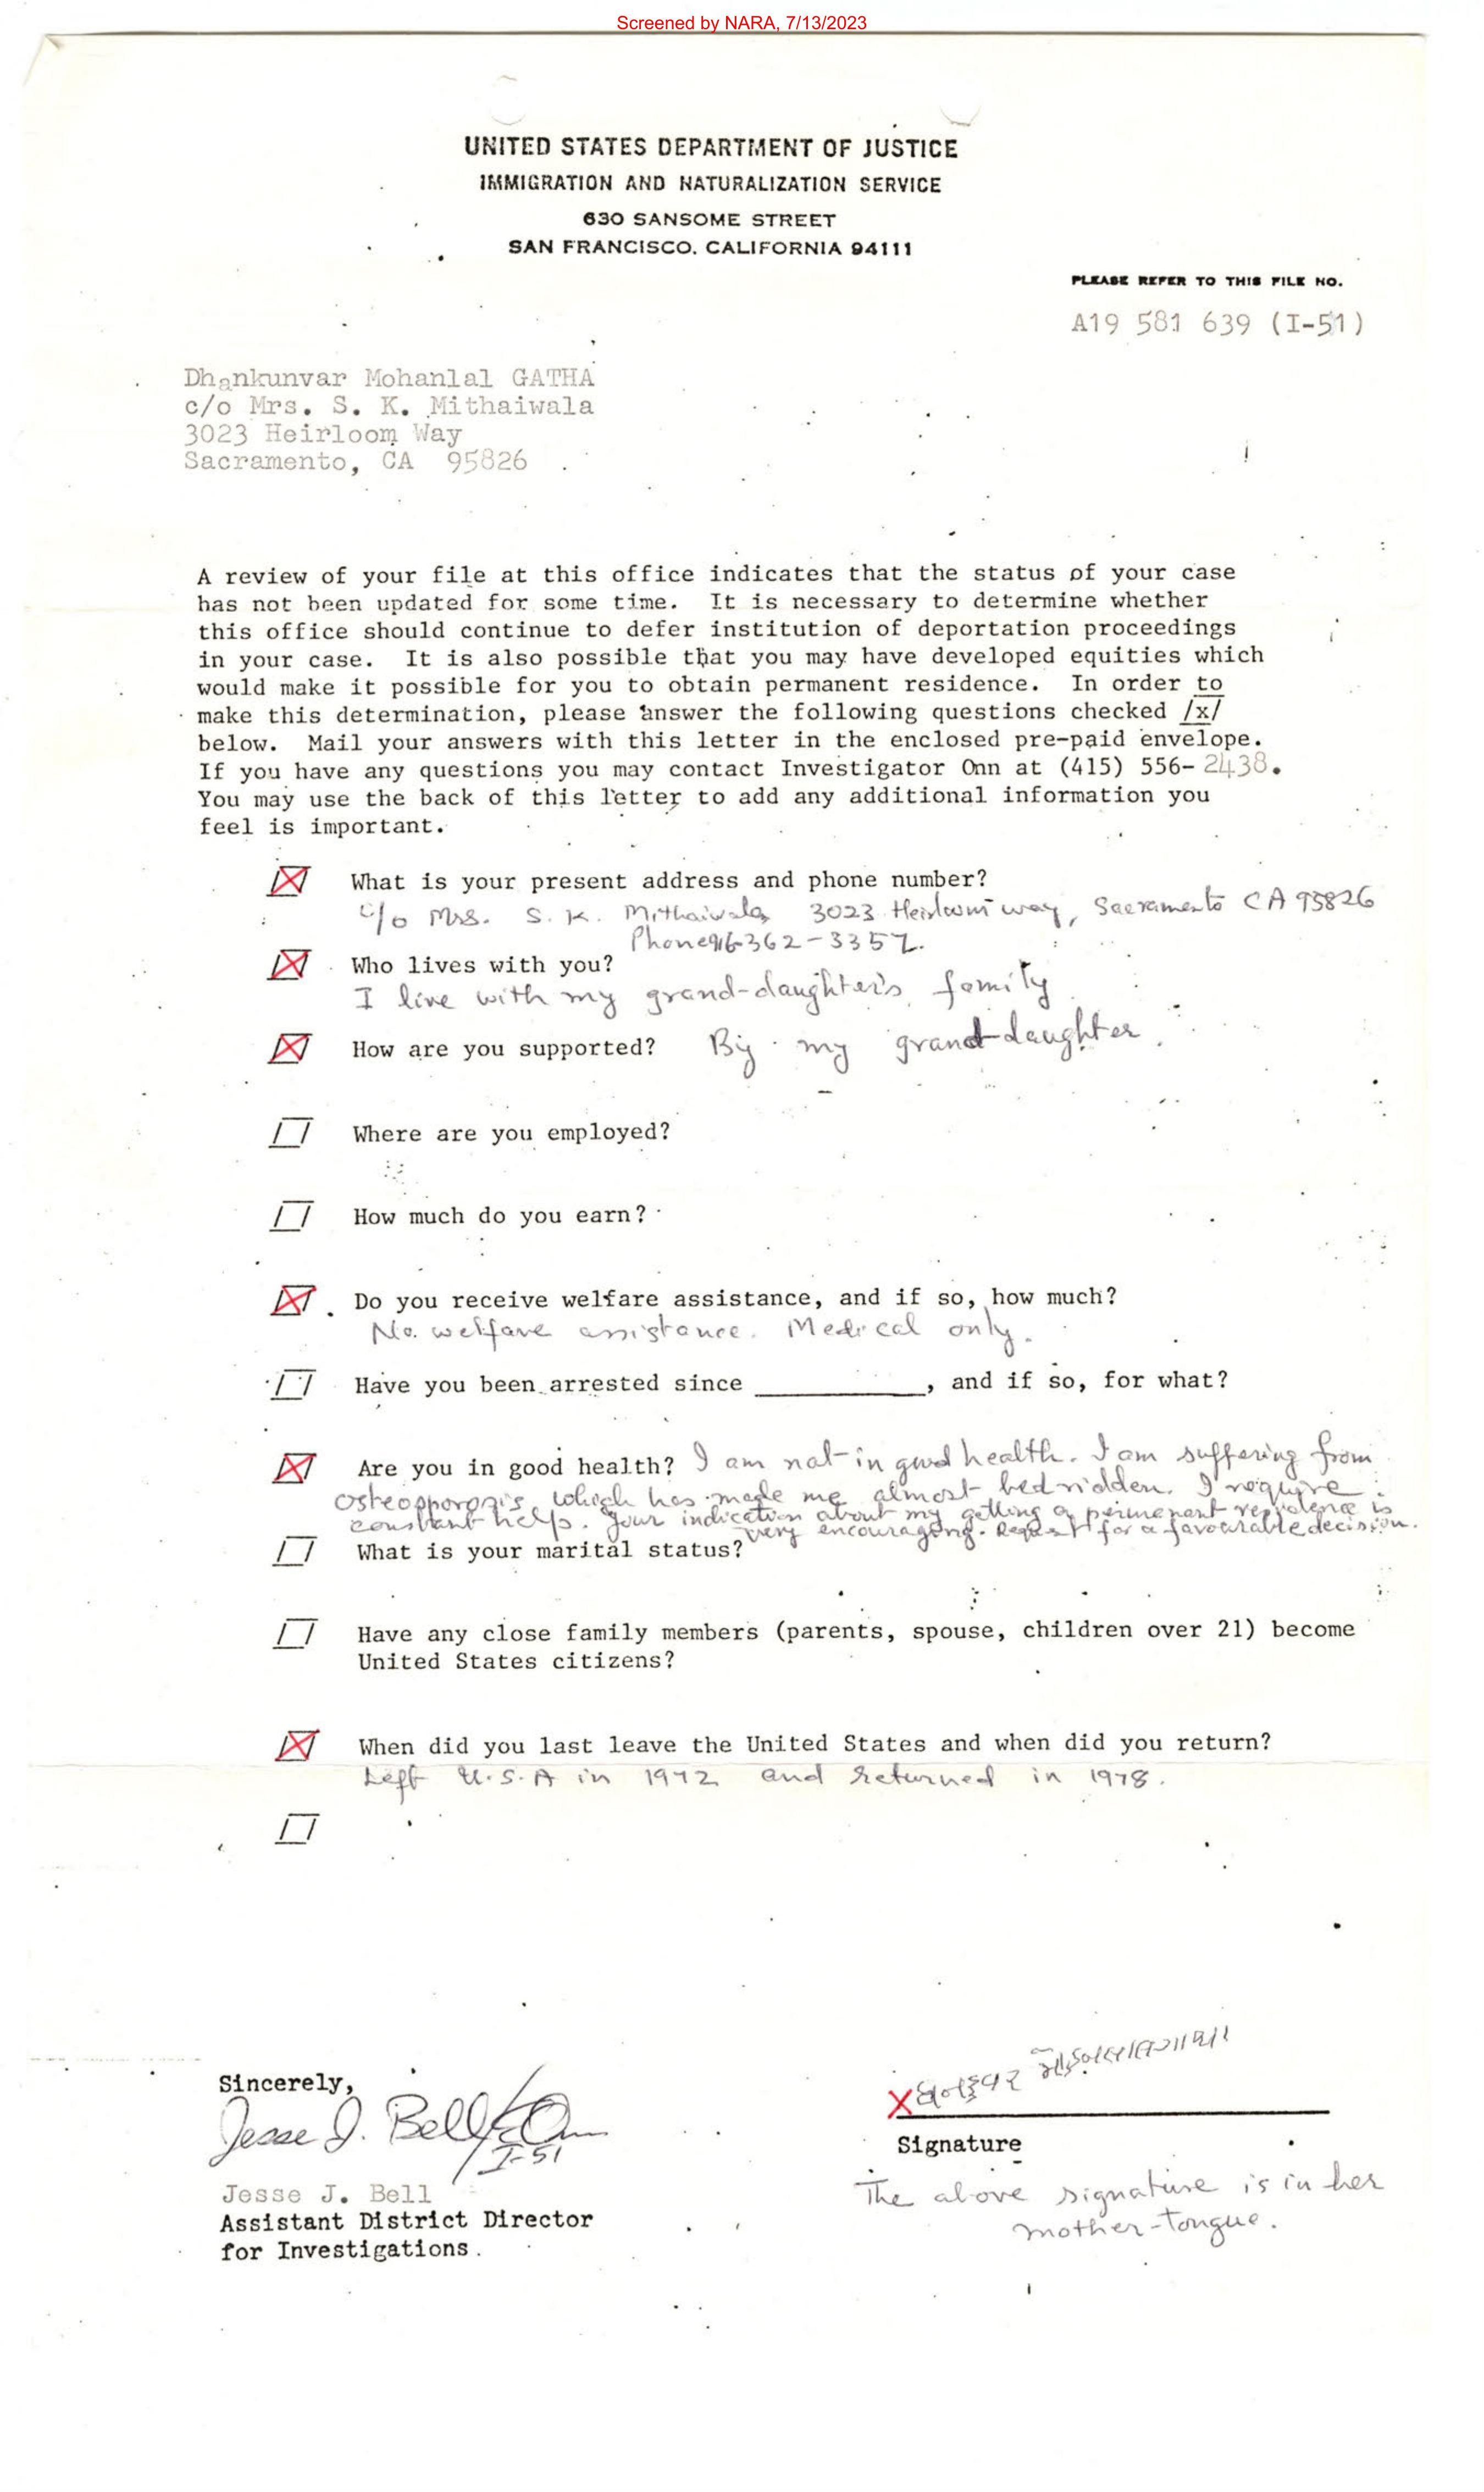 Screened by NARA, 7/13/2023
UNITED STATES DEPARTMENT OF JUSTICE
IMMIGRATION AND NATURALIZATION SERVICE
630 SANSOME STREET
SAN FRANCISCO, CALIFORNIA 94111
PLEASE REFER TO THIS FILE NO.
A19 581 639 (I-51)
Dhankunvar Mohanlal GATHA
c/o Mrs. S. K. Mithaiwala
3023 Heirloom Way
Sacramento, CA 95826
A review of your file at this office indicates that the status of your case
has not been updated for some time. It is necessary to determine whether
this office should continue to defer institution of deportation proceedings
in your case. It is also possible that you may have developed equities which
would make it possible for you to obtain permanent residence. In order to
make this determination, please answer the following questions checked /x/
below. Mail your answers with this letter in the enclosed pre-paid envelope.
If you have any questions you may contact Investigator Onn at (415) 556-2438.
You may use the back of this letter to add any additional information you
feel is important.
What is your present address and phone number?
c/o Mrs. S. K. Mithaiwala, 3023 Heirloom way, Sacramento CA 95826
Phone 916-362-3357.
Who lives with you?
I live with my grand-daughter's family
How are you supported? By my grand-daughter.
Where are you employed?
How much do you earn?
Do you receive welfare assistance, and if so, how much?
No welfare assistance. Medical only.
Have you been arrested since ____________, and if so, for what?
Are you in good health? I am not in good health. I am suffering from
osteopporosis, which has made me almost bedridden. I require
constant help. Your indication about my getting a permanent residence is
very encouraging. Request for a favourable decision.
What is your marital status?
Have any close family members (parents, spouse, children over 21) become
United States citizens?
When did you last leave the United States and when did you return?
Left U.S.A in 1972 and returned in 1978.
Sincerely,
Jesse J. Bell
I-51
Jesse J. Bell
Assistant District Director
for Investigations.
X
Signature
The above signature is in her
mother-tongue.